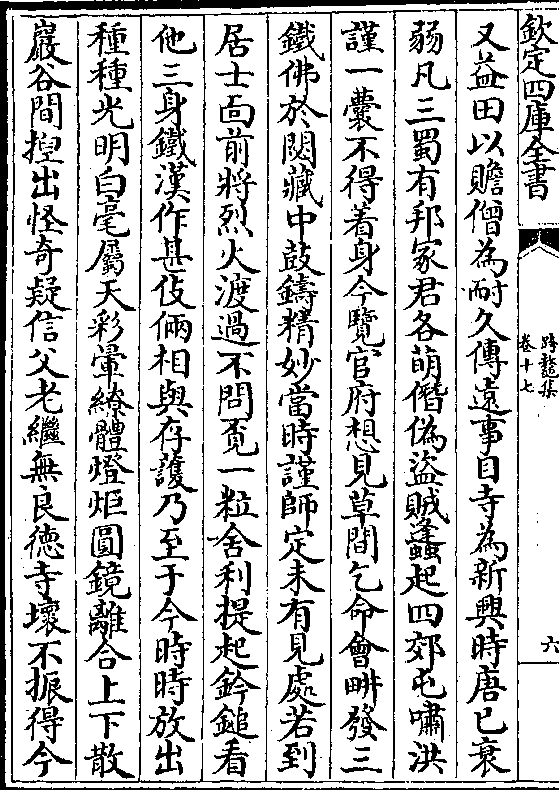 欽定四庫全書
跨鼇集
卷十七
六
又益田以贍僧為耐久傳遠事目寺為新興時唐已衰
弱凡三蜀有邦冢君各萌僭偽盜賊蠭起四郊屯嘯洪
謹一囊不得着身今覽官府想見草間乞命會畊發三
鐵佛於閟藏中鼓鑄精妙當時謹師定未有見處若到
居士面前將烈火渡過不問覔一粒舍利提起鈐鎚看
他三身鐵漢作甚伎倆相與存護乃至于今時時放出
種種光明白毫屬天彩暈繚體燈炬圓鏡離合上下散
巖谷間揑出怪奇疑信父老繼無良德寺壞不振得今